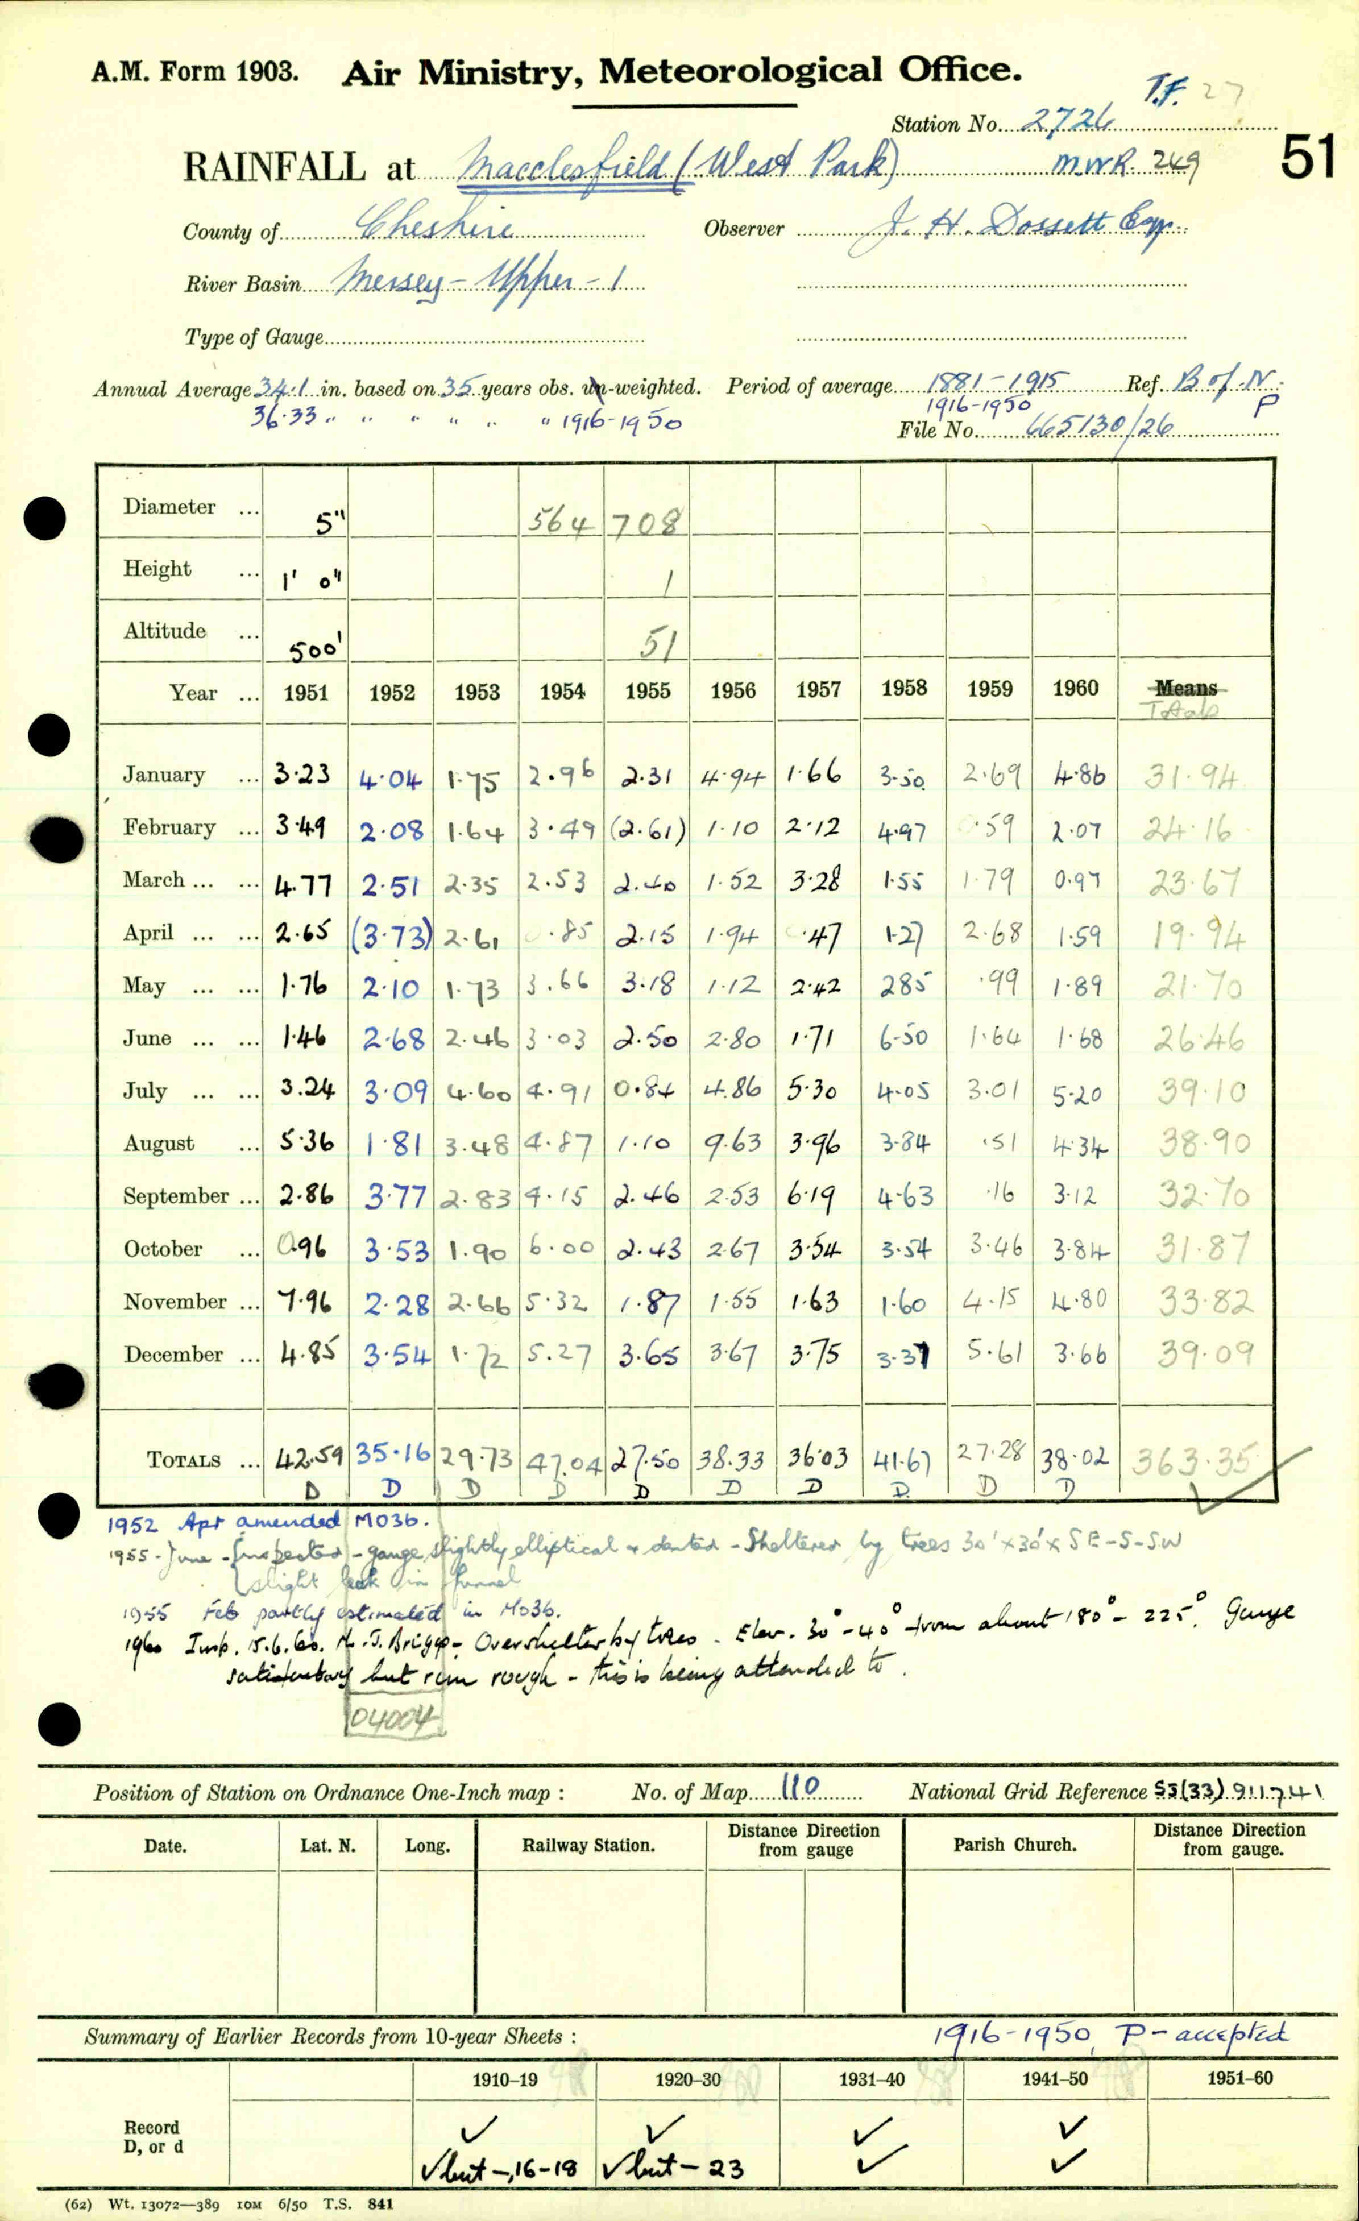 A.M. Form 1903. Air Ministry, Meteorological Office.
T.F. 27
Station No. 2726
51
RAINFALL at Macclesfield (West Park) M.W.R. 249
County of Cheshire Observer J. H. Dossett Esq.
River Basin Mersey - Upper - 1
Type of Gauge
Annual Average 34.1 in. based on 35 years obs. un-weighted. Period of average 1881-1915 Ref. B of N. P
36.33 " " " " " " 1916-1950 1916-1950
File No. 665130/26
Diameter ... 5" 564 708
Height ... 1' 0" 1
Altitude ... 500' 51
Year ... 1951 1952 1953 1954 1955 1956 1957 1958 1959 1960 Means
Totals
January ... 3.23 4.04 1.75 2.96 2.31 4.94 1.66 3.50 2.69 4.86 31.94
February ... 3.49 2.08 1.64 3.49 (2.61) 1.10 2.12 4.97 .59 2.07 24.16
March ... ... 4.77 2.51 2.35 2.53 2.40 1.52 3.28 1.55 1.79 0.97 23.67
April ... ... 2.65 (3.73) 2.61 0.85 2.15 1.94 0.47 1.27 2.68 1.59 19.94
May ... ... 1.76 2.10 1.73 3.66 3.18 1.12 2.42 285 .99 1.89 21.70
June ... ... 1.46 2.68 2.46 3.03 2.50 2.80 1.71 6.50 1.64 1.68 26.46
July ... ... 3.24 3.09 4.60 4.91 0.84 4.86 5.30 4.05 3.01 5.20 39.10
August ... 5.36 1.81 3.48 4.87 1.10 9.63 3.96 3.84 .51 4.34 38.90
September ... 2.86 3.77 2.83 4.15 2.46 2.53 6.19 4.63 .16 3.12 32.70
October ... 0.96 3.53 1.90 6.00 2.43 2.67 3.54 3.54 3.46 3.84 31.87
November ... 7.96 2.28 2.66 5.32 1.87 1.55 1.63 1.60 4.15 4.80 33.82
December ... 4.85 3.54 1.72 5.27 3.65 3.67 3.75 3.37 5.61 3.66 39.09
TOTALS ... 42.59 35.16 29.73 47.04 27.50 38.33 36.03 41.67 27.28 38.02 363.35
D D D D D D D D D D
1952 Apr amended MO3b.
1955 - June - Inspected - gauge slightly elliptical & dented - Sheltered by trees 30' x 30' x SE-S-SW
slight leak in funnel
1955 Feb partly estimated in MO3b.
1960 Insp. 15.6.60. M. J. Briggs - Oversheltered by trees. Elev. 30° - 40° from about 180° - 225°. Gauge
satisfactory but rim rough - this is being attended to.
04004
Position of Station on Ordnance One-Inch map : No. of Map 110 National Grid Reference SJ(33) 911741
Date. Lat. N. Long. Railway Station. Distance Direction from gauge Parish Church. Distance Direction from gauge.
Summary of Earlier Records from 10-year Sheets : 1916-1950, P - accepted
1910–19 1920–30 1931–40 1941–50 1951–60
Record
D, or d
✓ ✓ ✓ ✓
✓ but -, 16-18 ✓ but - 23 ✓ ✓
(62) Wt. 13072—389 10M 6/50 T.S. 841